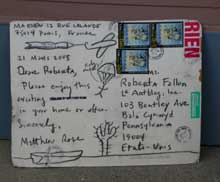 MATTHEW 12 RUE LALANDE
75014 Paris, France
21 MARS 2005
Dear Roberta,
Please enjoy this
exciting
in your home or office.
Sincerely,
Matthew Rose
RIEN
Ms.
Roberta Fallon
103 Bentley Ave
Bala Cynwyd
Pennsylvania
19004
Etats-Unis